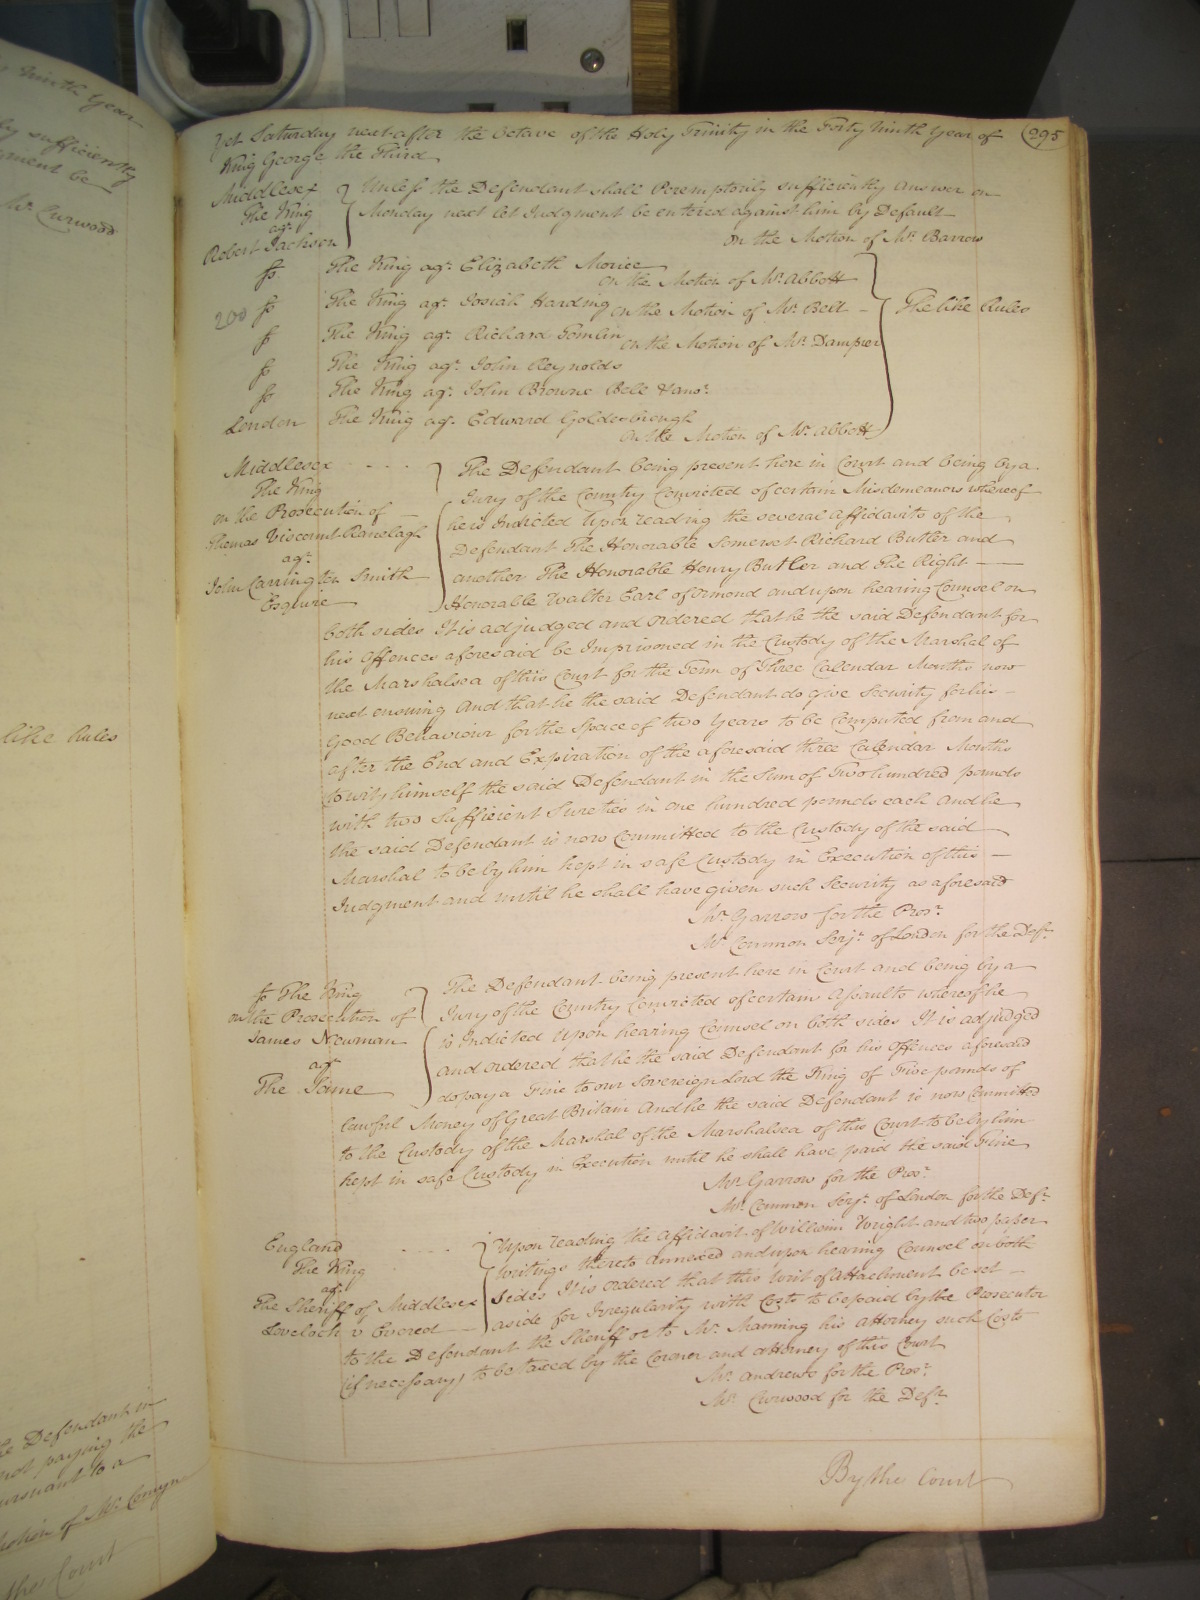 s Ninth Year
ly sufficiently
gment be
Mr. Curwood
like Rules
he Defendant in
not paying the
ursuant to a
Motion of Mr. Comyn
the Court
Yet Saturday next after the Octave of the Holy Trinity in the Forty Ninth Year of
295
King George the Third
Middlesex
The King
agt.
Robert Jackson
Unless the Defendant shall Peremptorily sufficiently Answer on
Monday next let Judgment be entered against him by Default
On the Motion of Mr. Barrow
fs. The King agt. Elizabeth Morice
On the Motion of Mr. Abbott
200 fs. The King agt. Josiah Harding On the Motion of Mr. Bell
The like Rules
fs. The King agt. Richard Tomlin On the Motion of Mr. Dampier
fs. The King agt. John Reynolds
fs. The King agt. John Browne Bell & anor.
London The King agt. Edward Goldesbrough
On the Motion of Mr. Abbott
Middlesex
The King
on the Prosecution of
Thomas Viscount Ranelagh
agt.
John Carrington Smith
Esquire
The Defendant being present here in Court and being by a
Jury of the Country Convicted of certain Misdemeanors whereof
he is Indicted Upon reading the several Affidavits of the
Defendant The Honorable Somerset Richard Butler and
another The Honorable Henry Butler and The Right
Honorable Walter Earl of Ormond and upon hearing Counsel on
both sides It is adjudged and ordered that he the said Defendant for
his Offences aforesaid be Imprisoned in the Custody of the Marshal of
the Marshalsea of this Court for the Term of Three Calendar Months now
next ensuing And that he the said Defendant do give Security for his
Good Behaviour for the Space of two Years to be Computed from and
after the End and Expiration of the aforesaid three Calendar Months
to wit, himself the said Defendant in the Sum of Two hundred pounds
with two Sufficient Sureties in one hundred pounds each And he
the said Defendant is now Committed to the Custody of the said
Marshal to be by him kept in safe Custody in Execution of this
Judgment and until he shall have given such Security as aforesaid
Mr. Garrow for the Prosr.
Mr. Common Serjt. of London for the Deft.
fs. The King
on the Prosecution of
James Newman
agt.
The Same
The Defendant being present here in Court and being by a
Jury of the Country Convicted of certain Assaults whereof he
is Indicted Upon hearing Counsel on both sides It is adjudged
and ordered that he the said Defendant for his Offences aforesaid
do pay a Fine to our Sovereign Lord the King of Five pounds of
lawful Money of Great Britain And he the said Defendant is now Committed
to the Custody of the Marshal of the Marshalsea of this Court to be by him
kept in safe Custody in Execution until he shall have paid the said Fine
Mr. Garrow for the Prosr.
Mr. Common Serjt. of London for the Deft.
England
The King
agt.
The Sheriff of Middlesex
Lovelock v Evered
Upon reading the Affidavit of William Wright and two paper
Writings thereto annexed and upon hearing Counsel on both
sides It is ordered that this Writ of Attachment be set
aside for Irregularity with Costs to be paid by the Prosecutor
to the Defendant the Sheriff or to Mr. Manning his Attorney such Costs
(if necessary) to be taxed by the Coroner and Attorney of this Court
Mr. Andrews for the Prosr.
Mr. Curwood for the Deft.
By the Court